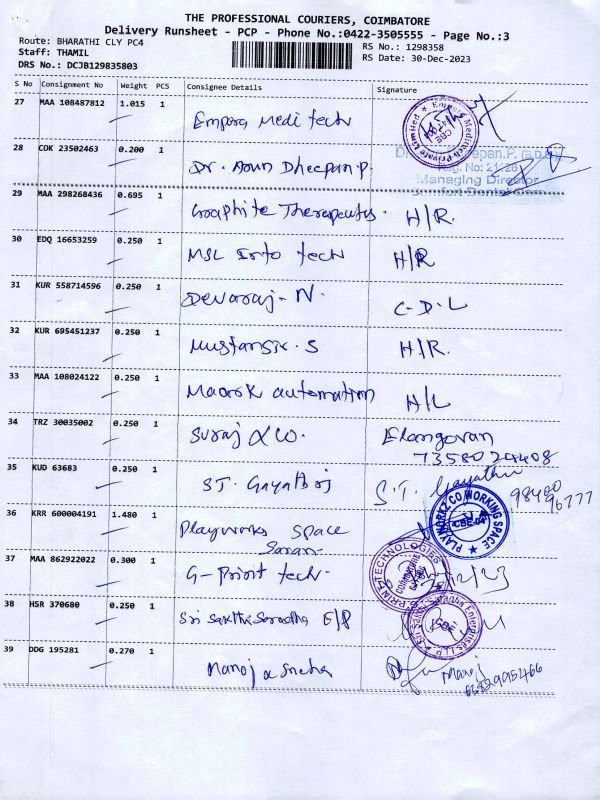 THE PROFESSIONAL COURIERS, COIMBATORE
Delivery Runsheet - PCP - Phone No.:0422-3505555 - Page No.:3
Route: BHARATHI CLY PC4
RS No.: 1298358
Staff: THAMIL
RS Date: 30-Dec-2023
DRS No.: DCJB129835803
S No Consignment No Weight PCS Consignee Details Signature
27 MAA 108487812 1.015 1 Empora Medi tech
28 COK 23502463 0.200 1 Dr. Arun Dheepan.P.
Managing Director
29 MAA 298268436 0.695 1 Graphite Therapeutis. H/R.
30 EDQ 16653259 0.250 1 MSL Info tech H/R
31 KUR 558714596 0.250 1 Devaraj-N. C-D.L
32 KUR 695451237 0.250 1 Mustansir.S H/R.
33 MAA 108024122 0.250 1 Maark automation H/L
34 TRZ 30035002 0.250 1 Suraj & co. Elangovan
7358024408
35 KUD 63683 0.250 1 ST. Gayathri S.T. Gayathri
98400
96777
36 KRR 600004191 1.480 1 Playworks Space
Saran
PLAYWORKZ CO WORKING SPACE
CBE-04
37 MAA 862922022 0.300 1 G-Print tech.
PRINT TECHNOLOGIES
38 HSR 370680 0.250 1 Sri Sakthi Saradha E/P
39 DDG 195281 0.270 1 Manoj & Sneha Manoj